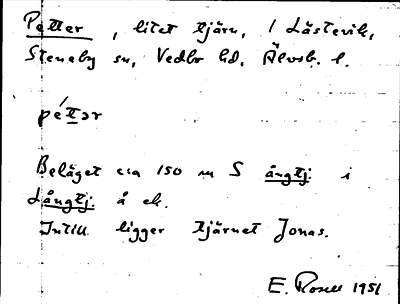 Petter, litet tjärn, / Låstevik,
Steneby sn, Vedbo hd, Älvsb. l.
pét̲ər
Beläget cca 150 m S ångtj. i
Långtj. å ek.
Intill ligger tjärnet Jonas.
E. Rosell 1951